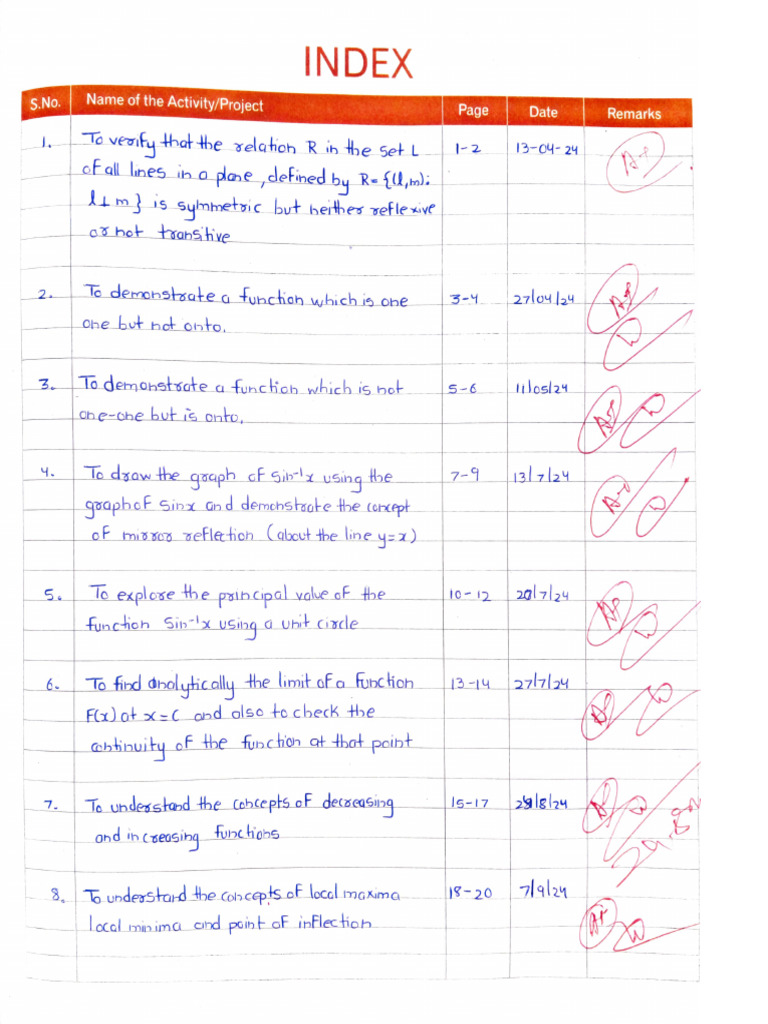 INDEX
S.No. Name of the Activity/Project Page Date Remarks
1. To verify that the relation R in the set L 1-2 13-04-24 A+
of all lines in a plane, defined by R= {(l,m):
l⊥m} is symmetric but neither reflexive
or not transitive
2. To demonstrate a function which is one 3-4 27/04/24
one but not onto.
3. To demonstrate a function which is not 5-6 11/05/24
one-one but is onto.
4. To draw the graph of sin⁻¹x using the 7-9 13/7/24
graph of sinx and demonstrate the concept
of mirror reflection (about the line y=x)
5. To explore the principal value of the 10-12 20/7/24
function sin⁻¹x using a unit circle
6. To find analytically the limit of a function 13-14 27/7/24
F(x) at x=c and also to check the
continuity of the function at that point
7. To understand the concepts of decreasing 15-17
and increasing functions
8. To understand the concepts of local maxima 18-20 7/9/24 A+
local minima and point of inflection